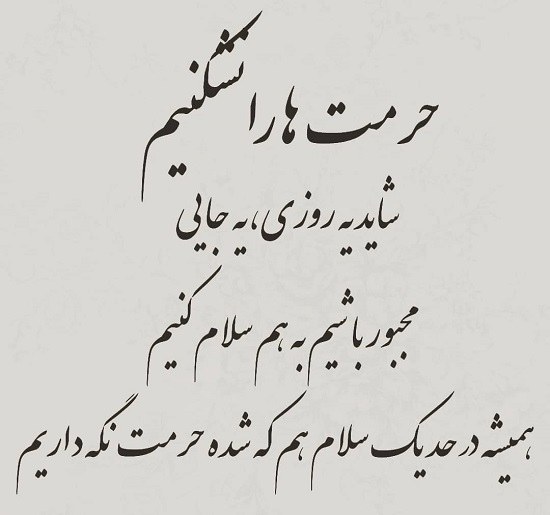 حرمت ها را نشکنیم
شاید یه روزی، یه جایی
مجبور باشیم به هم سلام کنیم
همیشه در حد یک سلام هم که شده حرمت نگه داریم